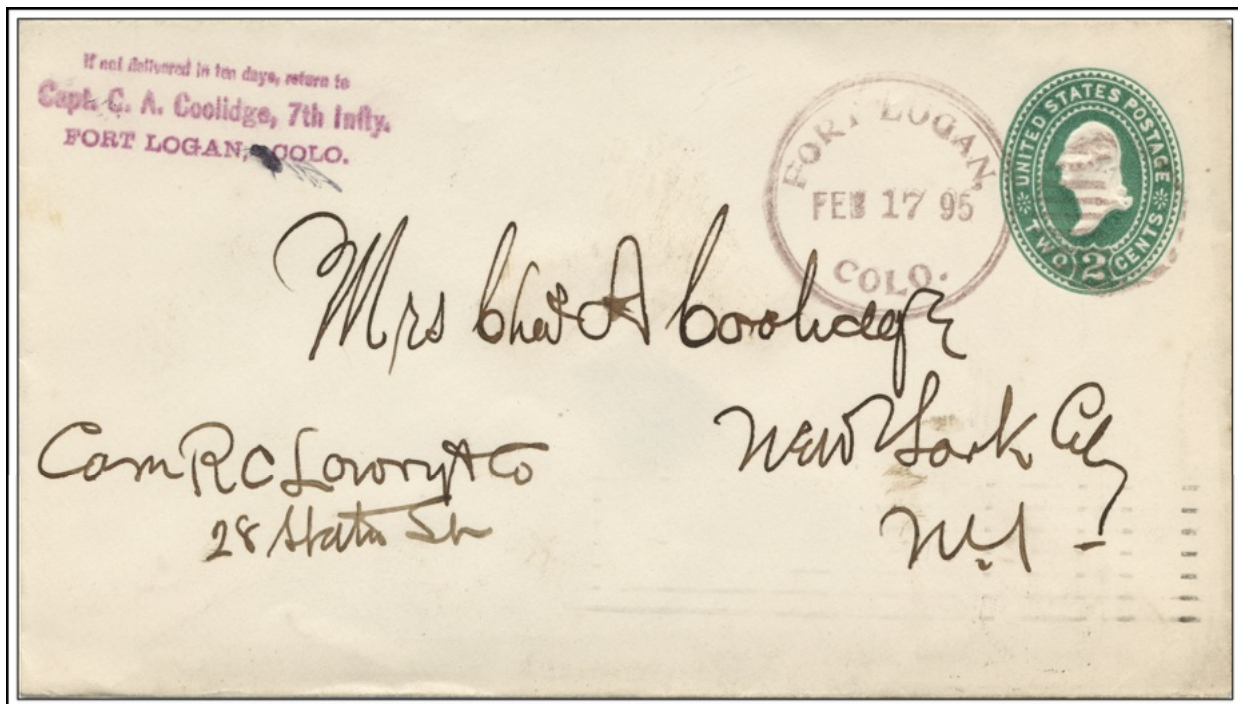 If not delivered in ten days, return to
Capt. C. A. Coolidge, 7th Infty.
FORT LOGAN, COLO.
FORT LOGAN,
FEB 17 95
COLO.
UNITED STATES POSTAGE
TWO 2 CENTS
Mrs Chas A Coolidge
New York City
N.Y
Care R C Lowry & Co
28 State St